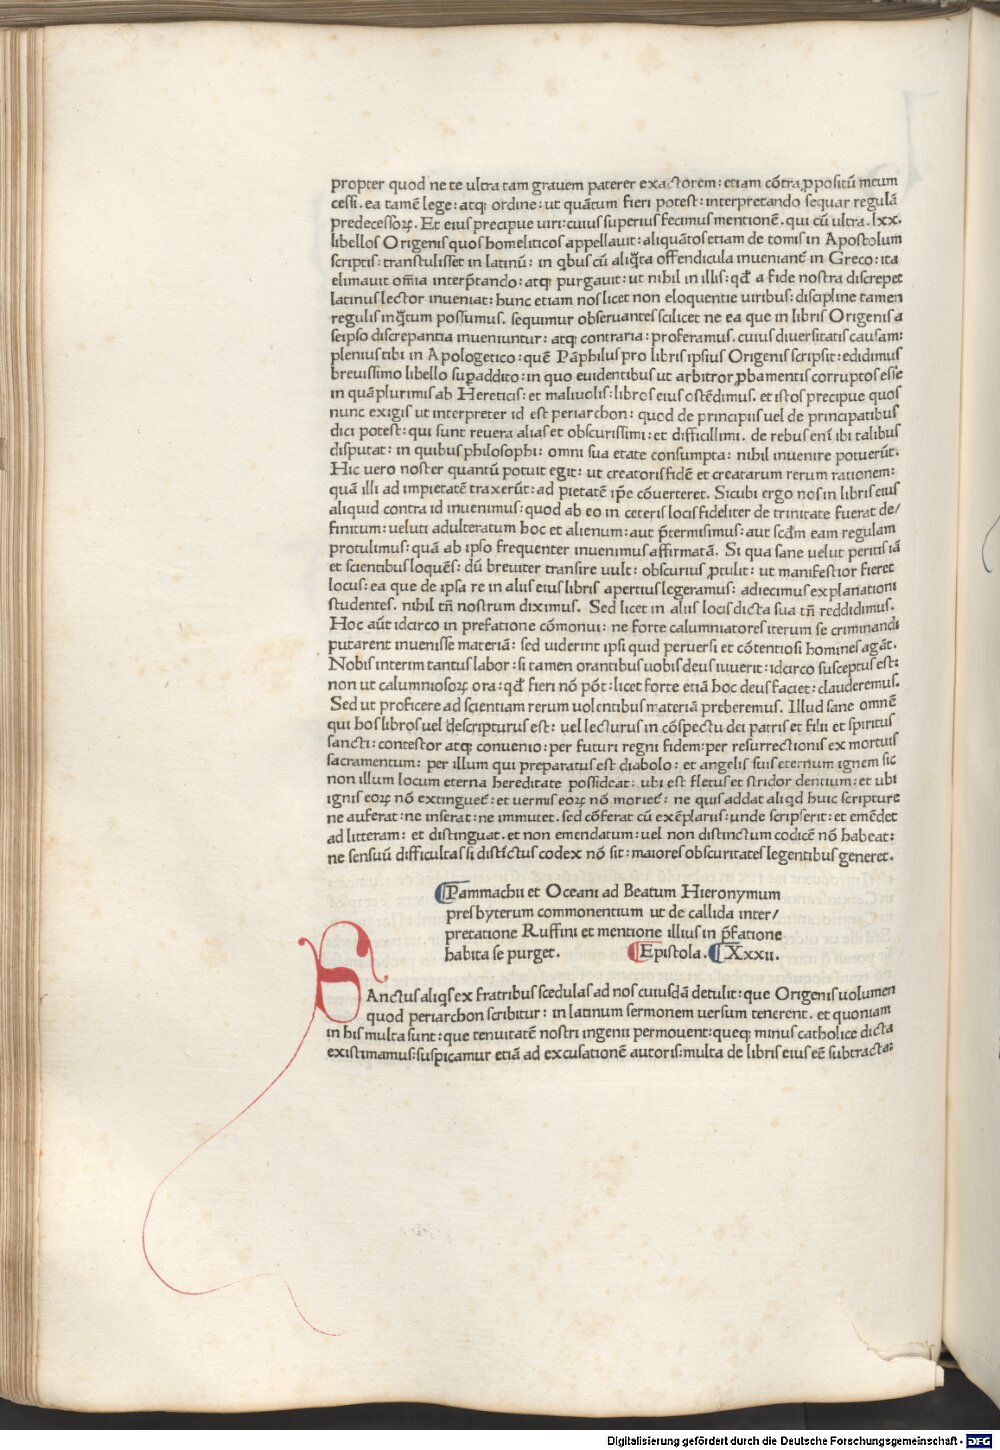 propter quod ne te ultra tam grauem paterer exactorem: etiam cōtra ꝓpositū meum
cessi. ea tamē lege: atq; ordine: ut quātum fieri potest: interpretando sequar regulā
predecessorꝝ. Et eius precipue uiri: cuius superius fecimus mentionē. qui cū ultra. lxx.
libellos Origenis quos homeliticos appellauit: aliquātos etiam de tomis in Apostolum
scriptis: transtulisset in latinū: in qbus cū aliq̄ta offendicula inueniant̄ in Greco: ita
elimauit om̄ia interp̄tando: atq; purgauit: ut nihil in illis: qd̄ a fide nostra discrepet
latinus lector inueniat: hunc etiam nos licet non eloquentie uiribus: discipline tamen
regulis inq̄tum possumus. sequimur obseruantes scilicet ne ea que in libris Origenis a
seipso discrepantia inueniuntur: atq; contraria: proferamus. cuius diuersitatis causam:
plenius tibi in Apologetico: quē Pāphilus pro libris ipsius Origenis scripsit: edidimus
breuissimo libello suꝑaddito: in quo euidentibus ut arbitror ꝓbamentis corruptos esse
in quāplurimis ab Hereticis: et maliuolis: libros eius ostēdimus. et istos precipue quos
nunc exigis ut interpreter id est periarchon: quod de principiis uel de principatibus
dici potest: qui sunt reuera alias et obscurissimi: et difficillimi. de rebus eni̅ ibi talibus
disputat: in quibus philosophi: omni sua etate consumpta: nihil inuenire potuerūt.
Hic uero noster quantū potuit egit: ut creatoris fidē et creatarum rerum rationem:
quā illi ad impietatē traxerūt: ad pietatē ip̄e cōuerteret. Sicubi ergo nos in libris eius
aliquid contra id inuenimus: quod ab eo in ceteris locis fideliter de trinitate fuerat de/
finitum: ueluti adulteratum hoc et alienum: aut p̄termisimus: aut scd̄m eam regulam
protulimus: quā ab ipso frequenter inuenimus affirmatā. Si qua sane uelut peritis iā
et scientibus loquēs: dū breuiter transire uult: obscurius ꝓtulit: ut manifestior fieret
locus: ea que de ipsa re in aliis eius libris apertius legeramus: adiecimus explanationi
studentes. nihil tn̄ nostrum diximus. Sed licet in aliis locis dicta sua tn̄ reddidimus.
Hoc aūt idcirco in prefatione cōmonui: ne forte calumniatores iterum se criminandi
putarent inuenisse materiā: sed uiderint ipsi quid peruersi et cōtentiosi homines agāt.
Nobis interim tantus labor: si tamen orantibus uobis deus iuuerit: idcirco susceptus est:
non ut calumniosorꝝ ora: qd̄ fieri nō pōt: licet forte etiā hoc deus faciet: clauderemus.
Sed ut proficere ad scientiam rerum uolentibus materiā preberemus. Illud sane omnē
qui hos libros uel descripturus est: uel lecturus in cōspectu dei patris et filii et spiritus
sancti: contestor atq; conuenio: per futuri regni fidem: per resurrectionis ex mortuis
sacramentum: per illum qui preparatus est diabolo: et angelis suis eternum ignem sic
non illum locum eterna hereditate possideat: ubi est fletus et stridor dentium: et ubi
ignis eorꝝ nō extinguet̄: et uermis eorꝝ nō moriet̄: ne quis addat aliqd huic scripture
ne auferat: ne inserat: ne immutet. sed cōferat cū exēplariis: unde scripserit: et emēdet
ad litteram: et distinguat. et non emendatum: uel non distinctum codicē nō habeat:
ne sensuū difficultas si distīctus codex nō sit: maiores obscuritates legentibus generet.
¶Pammachii et Oceani ad Beatum Hieronymum
presbyterum commonentium ut de callida inter/
pretatione Ruffini et mentione illius in p̄fatione
habita se purget. ¶Epistola. ¶Xxxii.
SAnctus aliqs ex fratribus scedulas ad nos cuiusdā detulit: que Origenis uolumen
quod periarchon scribitur: in latinum sermonem uersum tenerent. et quoniam
in his multa sunt: que tenuitatē nostri ingenii permouent: queq; minus catholice dicta
existimamus: suspicamur etiā ad excusationē autoris: multa de libris eius eē subtracta:
Digitalisierung gefördert durch die Deutsche Forschungsgemeinschaft - DFG